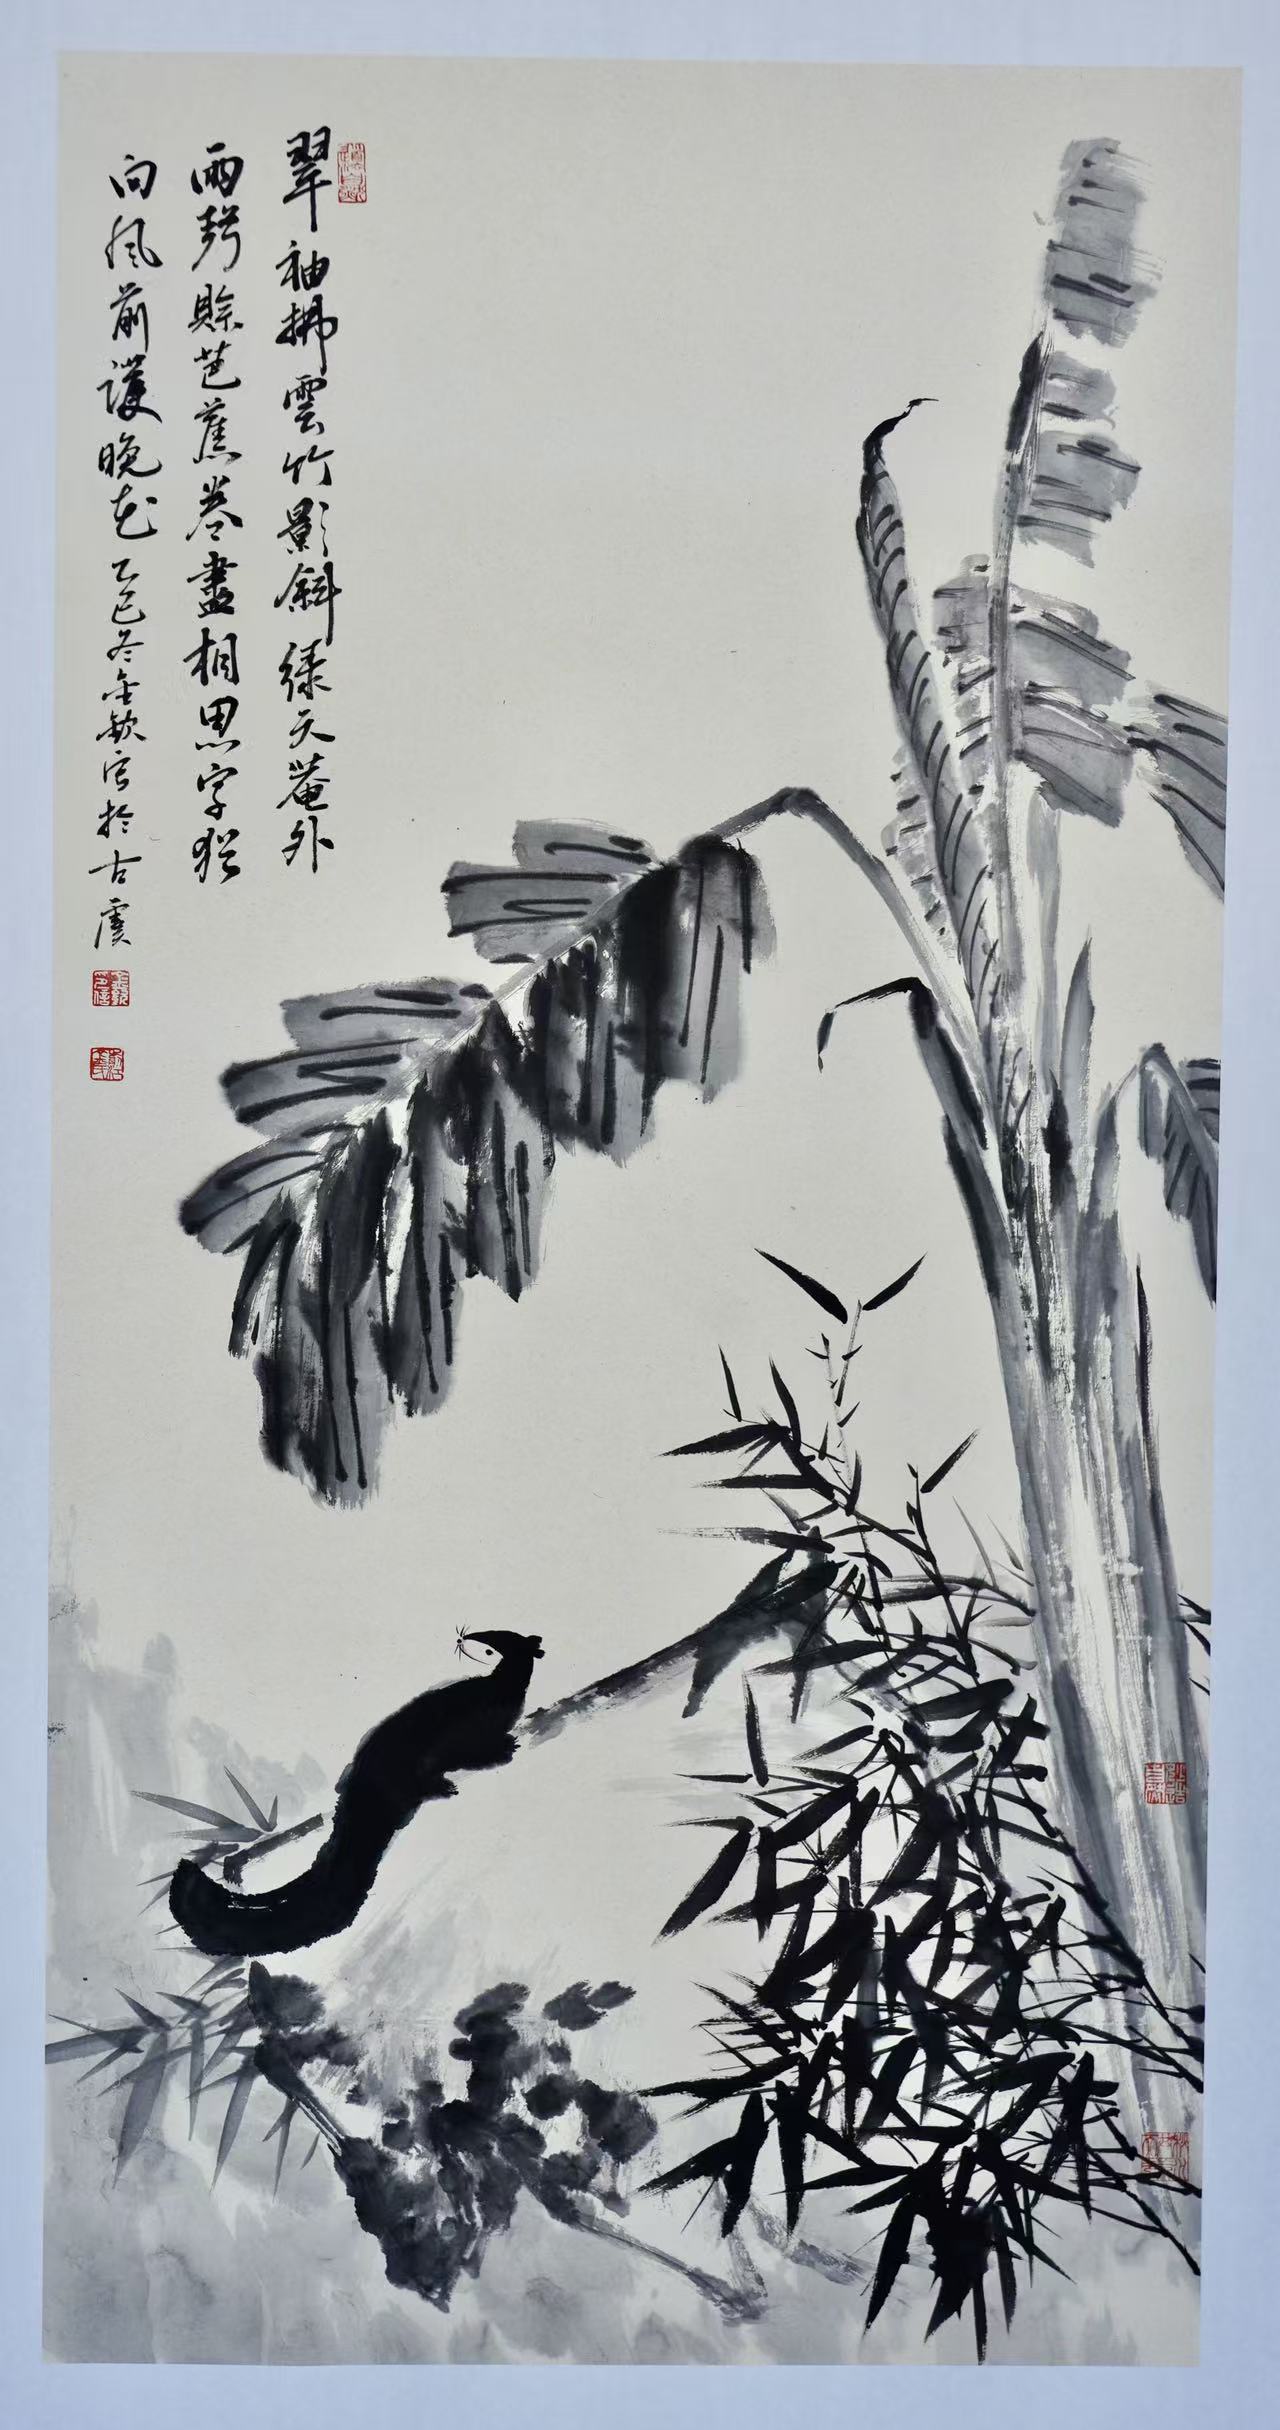 翠袖拂雲竹影斜綠天菴外
雨聲賒芭蕉卷盡相思字猶
向風前護晚花乙巳冬金欽寫於古虞